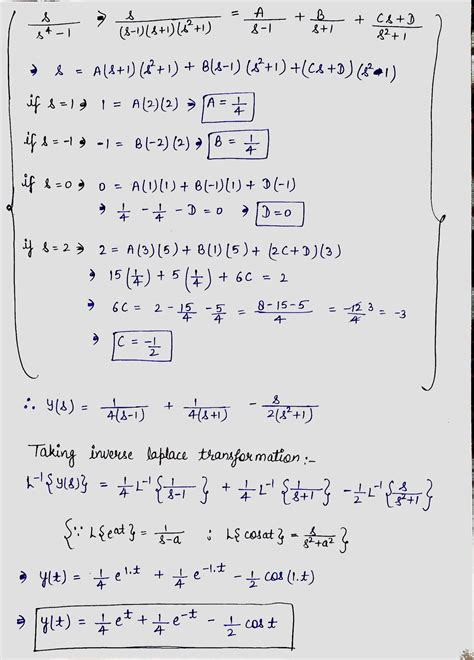 s/(s⁴-1) ⇒ s/((s-1)(s+1)(s²+1)) = A/(s-1) + B/(s+1) + (Cs+D)/(s²+1)
⇒ s = A(s+1)(s²+1) + B(s-1)(s²+1) + (Cs+D)(s²-1)
if s=1 ⇒ 1 = A(2)(2) ⇒ A = 1/4
if s=-1 ⇒ -1 = B(-2)(2) ⇒ B = 1/4
if s=0 ⇒ 0 = A(1)(1) + B(-1)(1) + D(-1)
⇒ 1/4 - 1/4 - D = 0 ⇒ D=0
if s=2 ⇒ 2 = A(3)(5) + B(1)(5) + (2C+D)(3)
⇒ 15(1/4) + 5(1/4) + 6C = 2
⇒ 6C = 2 - 15/4 - 5/4 = (8-15-5)/4 = -12/4 3 = -3
⇒ C = -1/2
∴ Y(s) = 1/(4(s-1)) + 1/(4(s+1)) - s/(2(s²+1))
Taking inverse laplace transformation:-
L⁻¹{Y(s)} = 1/4 L⁻¹{1/(s-1)} + 1/4 L⁻¹{1/(s+1)} - 1/2 L⁻¹{s/(s²+1)}
{∵ L{e^at} = 1/(s-a) ; L{cosat} = s/(s²+a²)}
⇒ y(t) = 1/4 e^1.t + 1/4 e^-1.t - 1/2 cos(1.t)
⇒ y(t) = 1/4 e^t + 1/4 e^-t - 1/2 cost